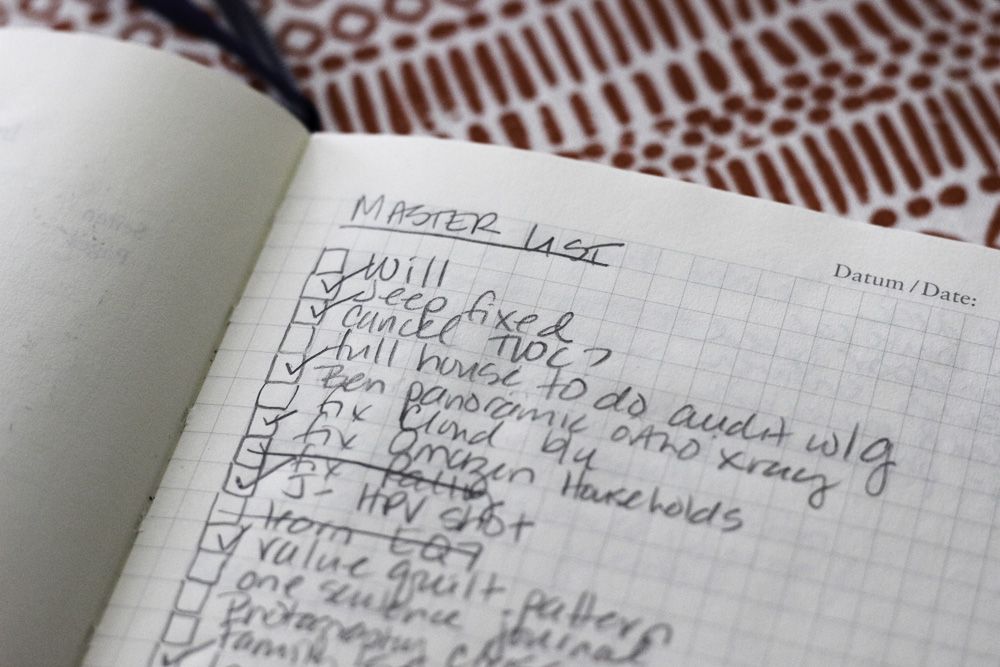 MASTER LIST
Datum / Date:
Will
Jeep fixed
cancel TWC?
full house to do audit w/g
Ben panoramic ortho xray
fix cloud by
fix amazon Households
fix
J- HPV shot
value quilt pattern
one sentence journal
Photography class
family